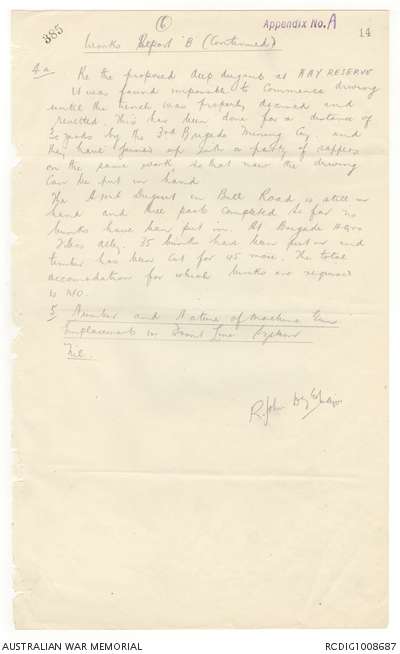 385
(6)
Appendix No. A
14
Works Report "B" (Continued)
4a Re the proposed deep dugout at HAY RESERVE
It was found impossible to commence driving
until the trench was properly drained and
revetted. This has been done for a distance of
yards by the 3rd Brigade Mining Coy. and
they have joined up with a party of sappers
on the same work, so that now the driving
can be put in hand.
The A.M.D Dugout in Bull Road is still in
hand and three parts completed. So far no
bunks have been put in. At Brigade Hqrs
75 bunks have been put in and
timber has been cut for 45 more. The total
accomodation for which bunks are required
is 140.
5. Number and Nature of Machine Gun
Emplacements in Front Line System
Nil.
R. John
AUSTRALIAN WAR MEMORIAL
RCDIG1008687